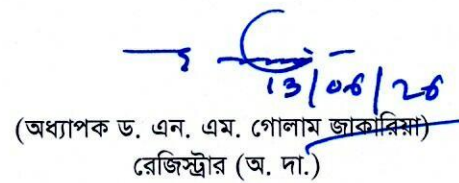 13/06/26
(অধ্যাপক ড. এন. এম. গোলাম জাকারিয়া)
রেজিস্ট্রার (অ. দা.)